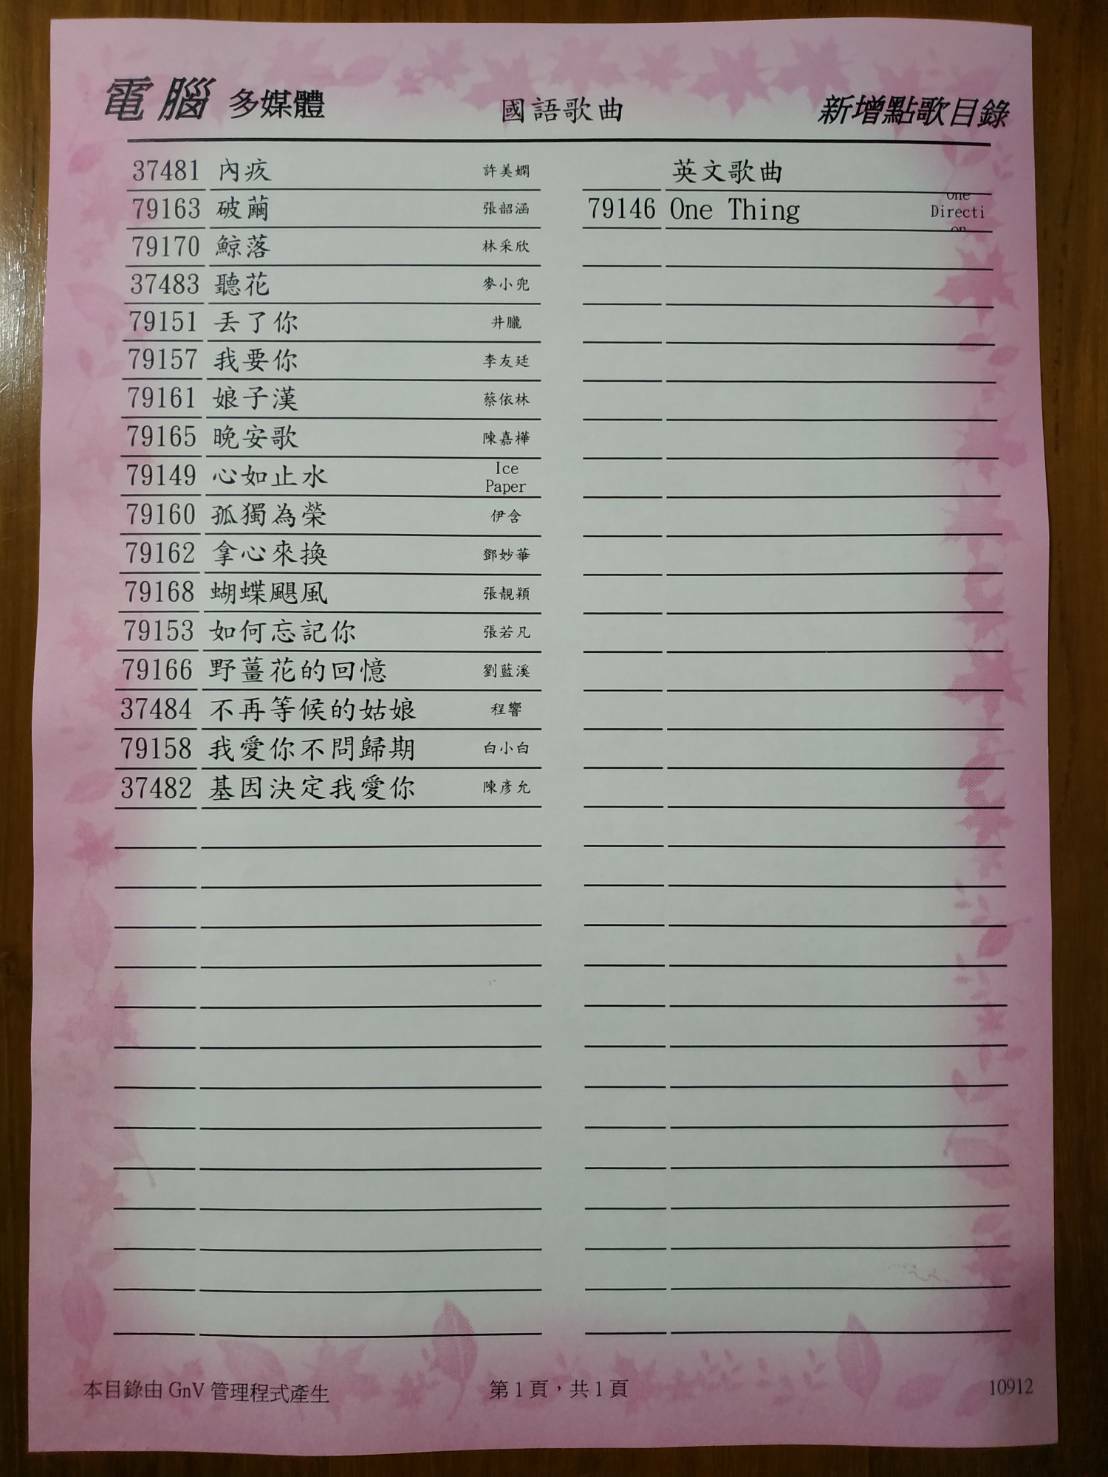 電腦 多媒體 國語歌曲 新增點歌目錄
37481 內疚 許美嫻
79163 破繭 張韶涵
79170 鯨落 林采欣
37483 聽花 麥小兜
79151 丟了你 井朧
79157 我要你 李友廷
79161 娘子漢 蔡依林
79165 晚安歌 陳嘉樺
79149 心如止水 Ice Paper
79160 孤獨為榮 伊含
79162 拿心來換 鄧妙華
79168 蝴蝶颶風 張靚穎
79153 如何忘記你 張若凡
79166 野薑花的回憶 劉藍溪
37484 不再等候的姑娘 程響
79158 我愛你不問歸期 白小白
37482 基因決定我愛你 陳彥允
英文歌曲
79146 One Thing One Direction
本目錄由 GnV 管理程式產生 第1頁,共1頁 10912